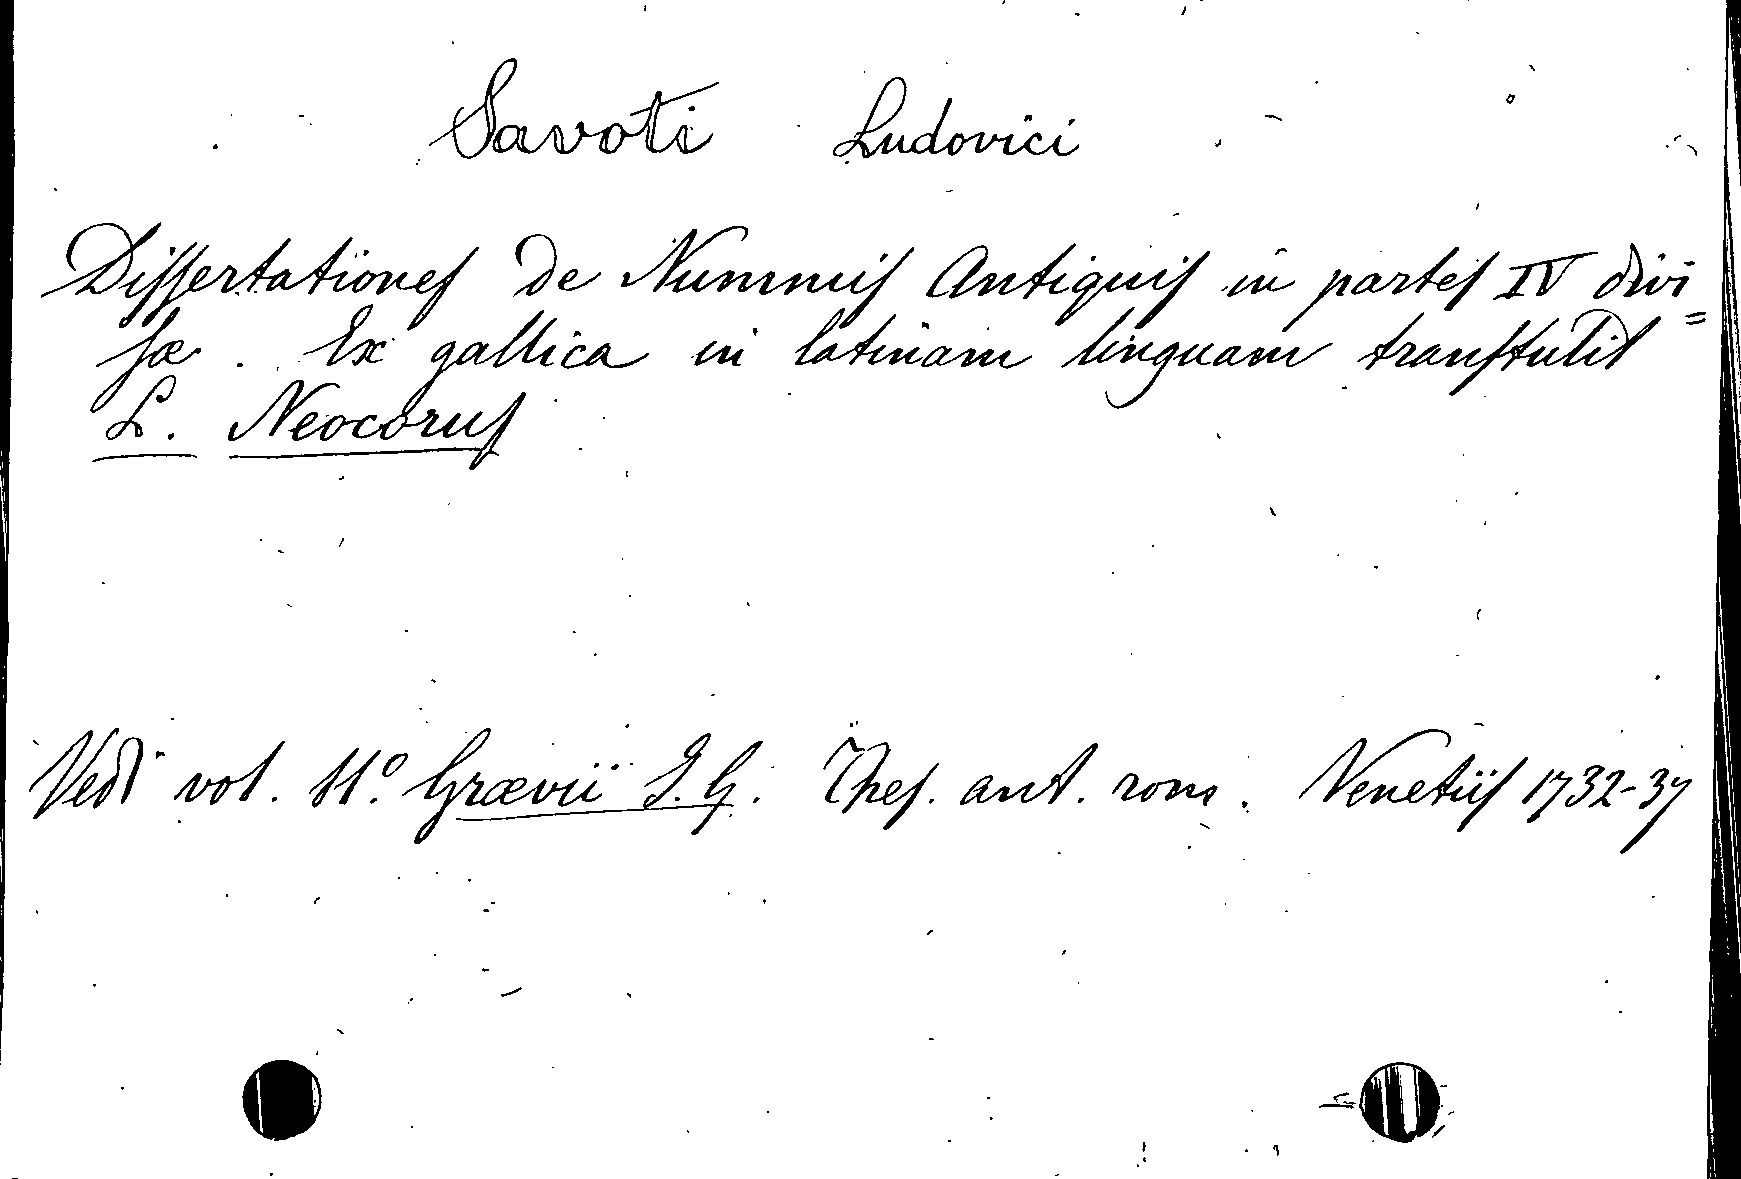 Savoti Ludovici
Dissertationes de Nummis Antiquis in partes IV divi=
sæ. Ex gallica in latinam linguam transtulit
L. Neocorus
Vedi vol. 11.º Grævii J. G. Thes. ant. rom. Venetiis 1732-37